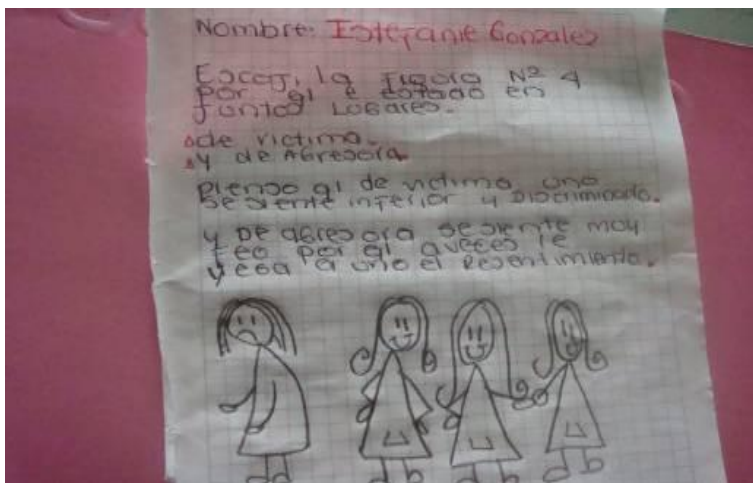 Nombre: Estefanie Gonzales
Escoj, la figura Nº 4
por qi e estado en
juntos Lugares.
de victima.
y de Agresora.
pienso qi de victima uno
se siente inferior y Discriminado.
y De agresora se siente muy
feo por qi aveces le
yega a uno el Resentimiento.